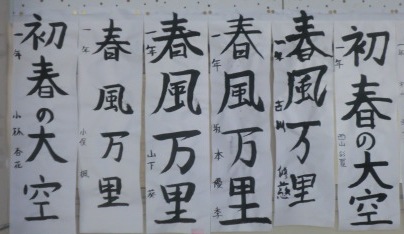 初春の大空
一年
春風万里
一年
春風万里
一年
山下 葵
春風万里
一年
坂本 優幸
春風万里
一年
初春の大空
一年